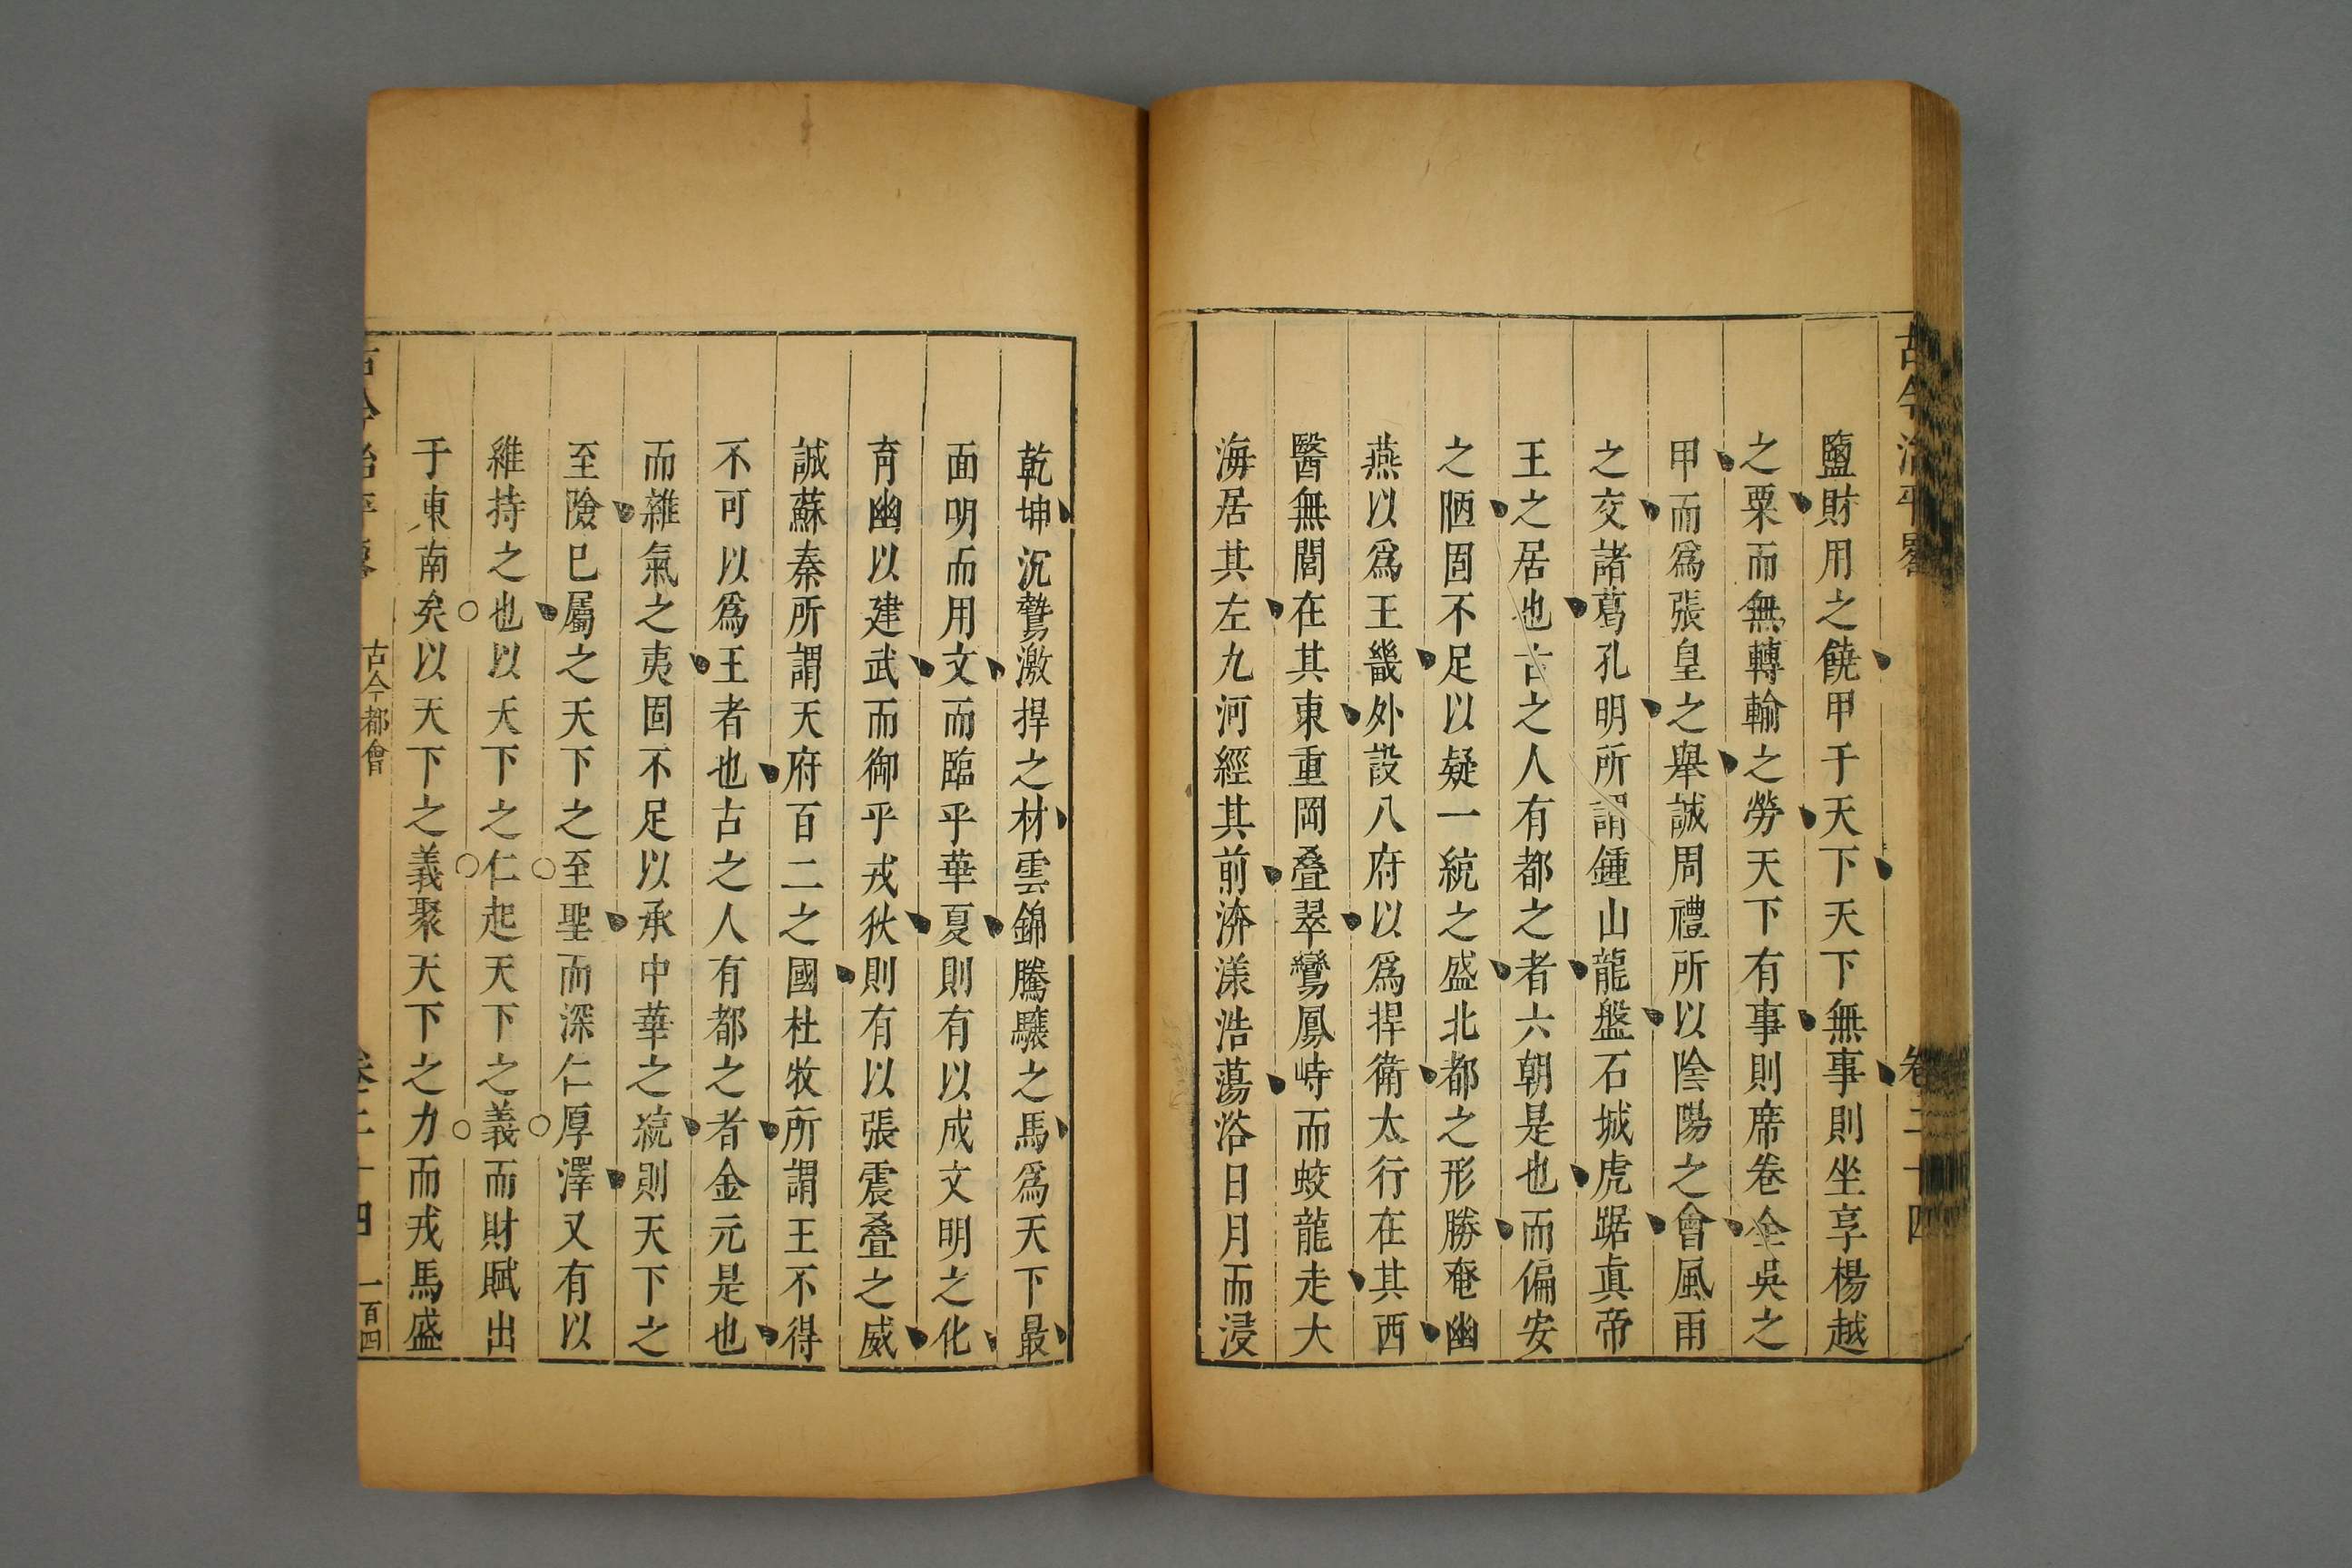 古今治平畧
卷二十四
鹽財用之饒甲于天下天下無事則坐享楊越
之粟而無轉輸之勞天下有事則席卷全吳之
甲而爲張皇之舉誠周禮所以陰陽之會風雨
之交諸葛孔明所謂鍾山龍盤石城虎踞眞帝
王之居也古之人有都之者六朝是也而偏安
之陋固不足以疑一統之盛北都之形勝奄幽
燕以爲王畿外設八府以爲捍衛太行在其西
醫無閭在其東重岡叠翠鸞鳳峙而蛟龍走大
海居其左九河經其前濟漾浩蕩浴日月而浸
乾坤沉鷙激捍之材雲錦騰驤之馬爲天下最
面明而用文而臨乎華夏則有以成文明之化
育幽以建武而御乎戎狄則有以張震叠之威
誠蘇秦所謂天府百二之國杜牧所謂王不得
不可以爲王者也古之人有都之者金元是也
而雜氣之夷固不足以承中華之統則天下之
至險巳屬之天下之至聖而深仁厚澤又有以
維持之也以天下之仁起天下之義而財賦出
于東南矣以天下之義聚天下之力而戎馬盛
古今治平畧
古今都會
卷二十四
一百四